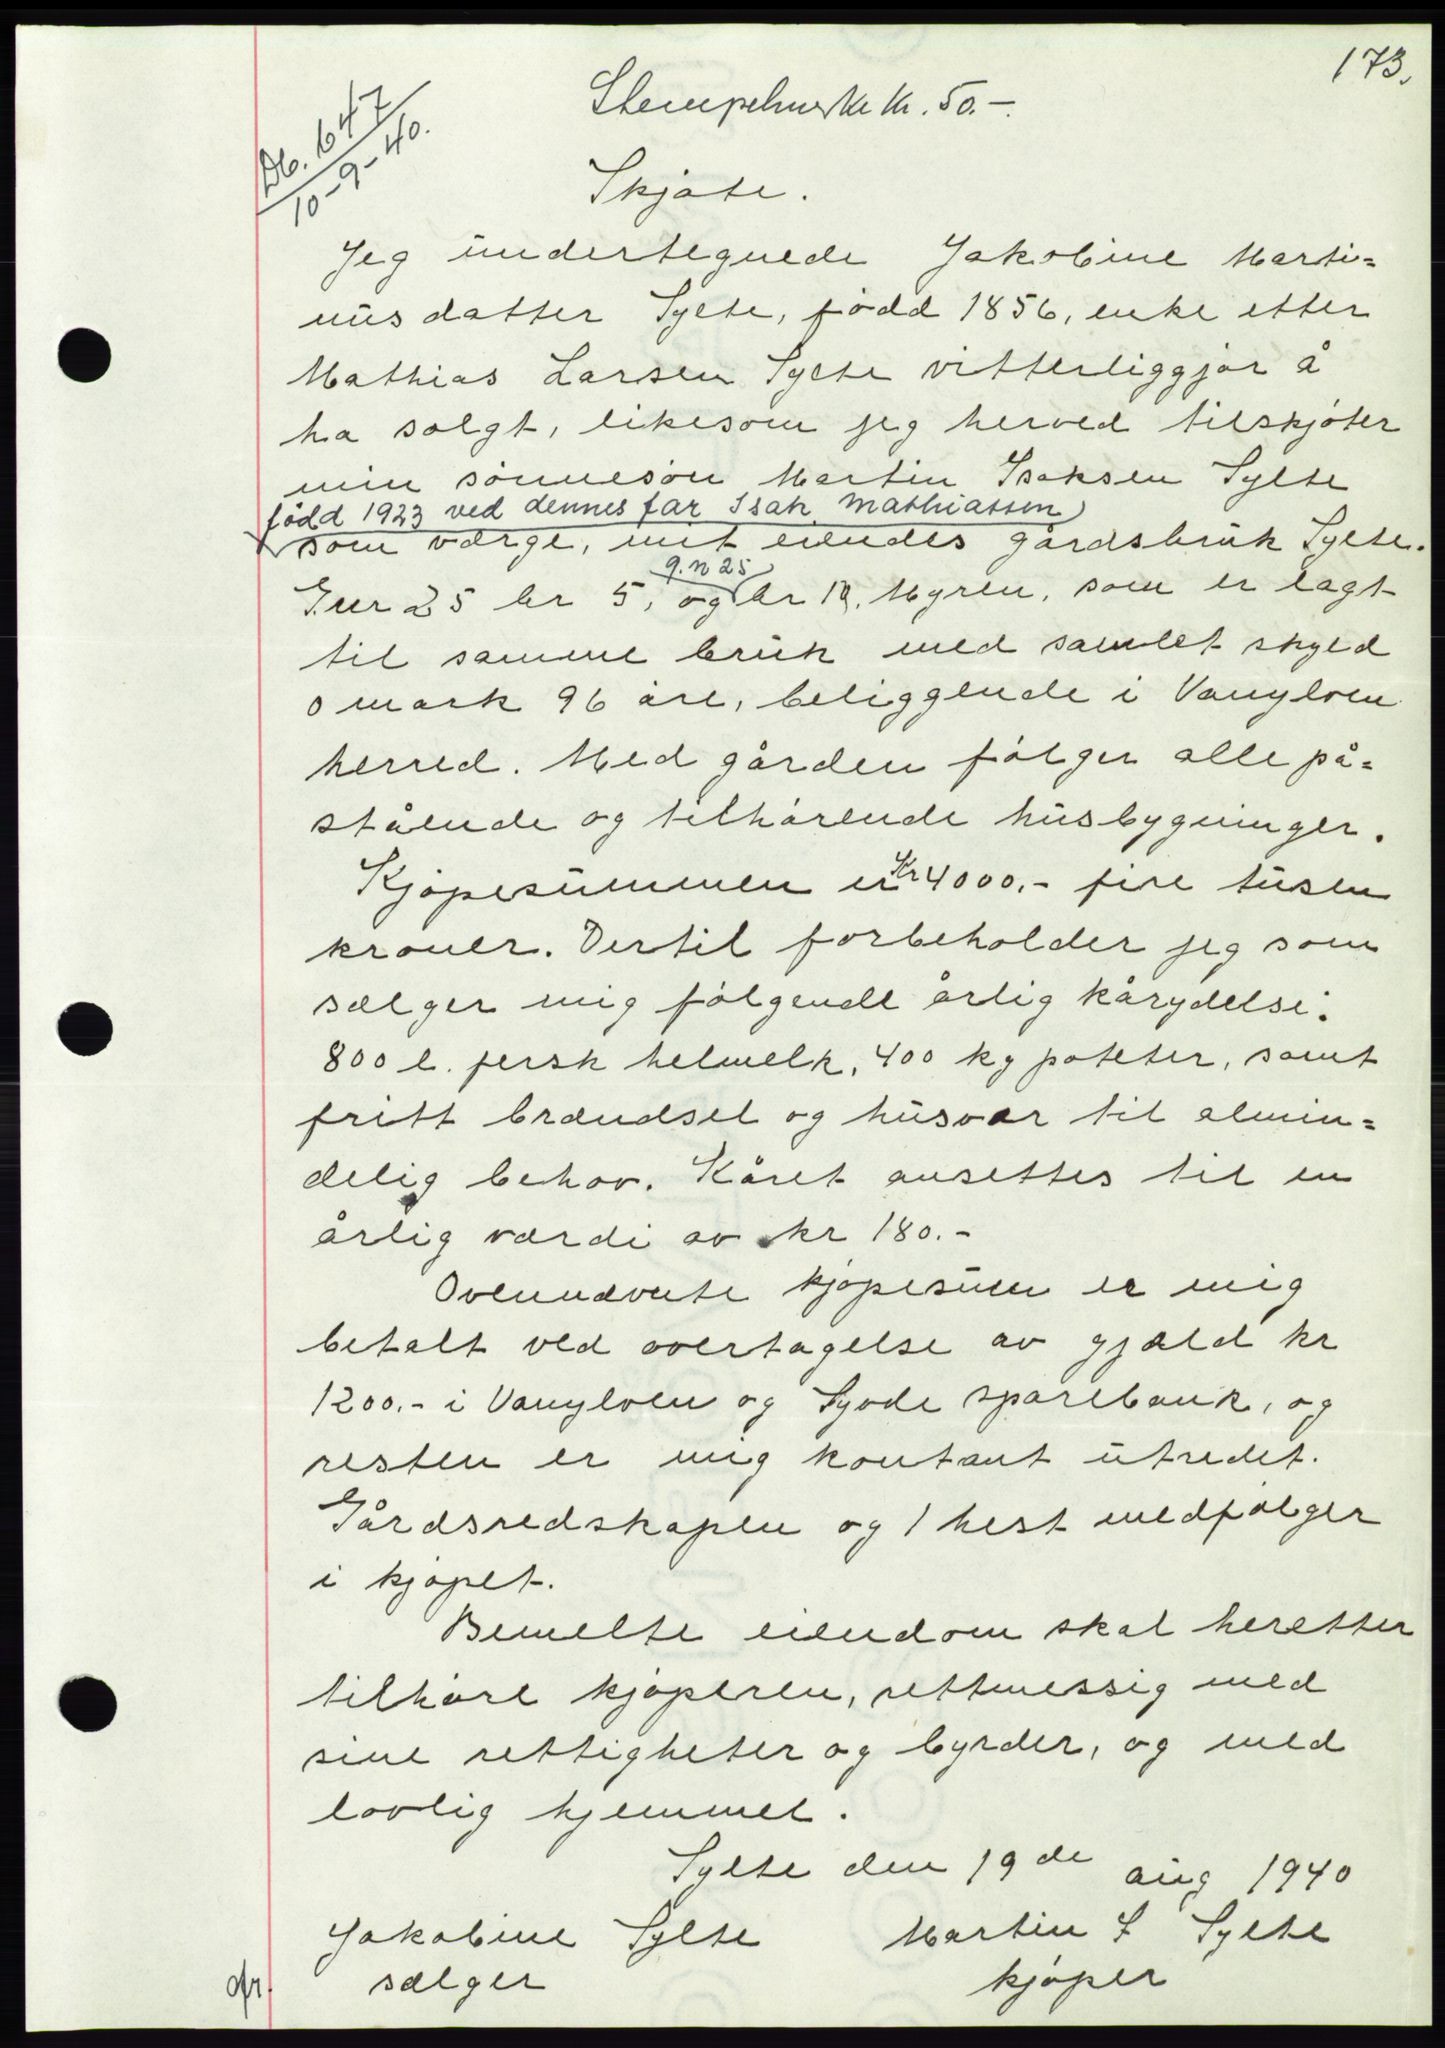 173.
Stempelmerke kr. 50.-.
Db. 647
10-9-40.
Skjøte.
Jeg undertegnede Jakobine Marti=
nusdatter Sylte, född 1856, enke etter
Mathias Larsen Sylte vitterliggjør å
ha solgt, likesom jeg herved tilskjøter
min sønnesøn Martin Isaksen Sylte
född 1923 ved dennes far Isak Mathiassen
som værge, mit eiendes gårdsbruk Sylte.
g.n 25
Gnr 25 br 5, og br 12, Myren, som er lagt
til samme bruk med samlet skyld
0 mark 96 øre, beliggende i Vanylven
herred. Med gården følger alle på=
stående og tilhørende husbygninger.
Kjøpesummen er Kr 4000.- fire tusen
kroner. Dertil forbeholder jeg som
sælger mig følgende årlig kårydelse:
800 l. fersk helmelk, 400 kg poteter, samt
fritt brændsel og husvær til almin=
delig behov. Kåret ansettes til en
årlig værdi av kr 180.-
Ovennævnte kjøpesum er mig
betalt ved overtagelse av gjæld kr
1200.- i Vanylven og Syvde sparebank, og
resten er mig kontant utredet.
Gårdsredskapen og 1 hest medfølger
i kjøpet.
Bemelte eiendom skal heretter
tilhøre kjøperen, rettmessig med
sine rettigheter og byrder, og med
lovlig hjemmel.
Sylte den 19de aug 1940
Jakobine Sylte Martin I Sylte
sælger kjøper